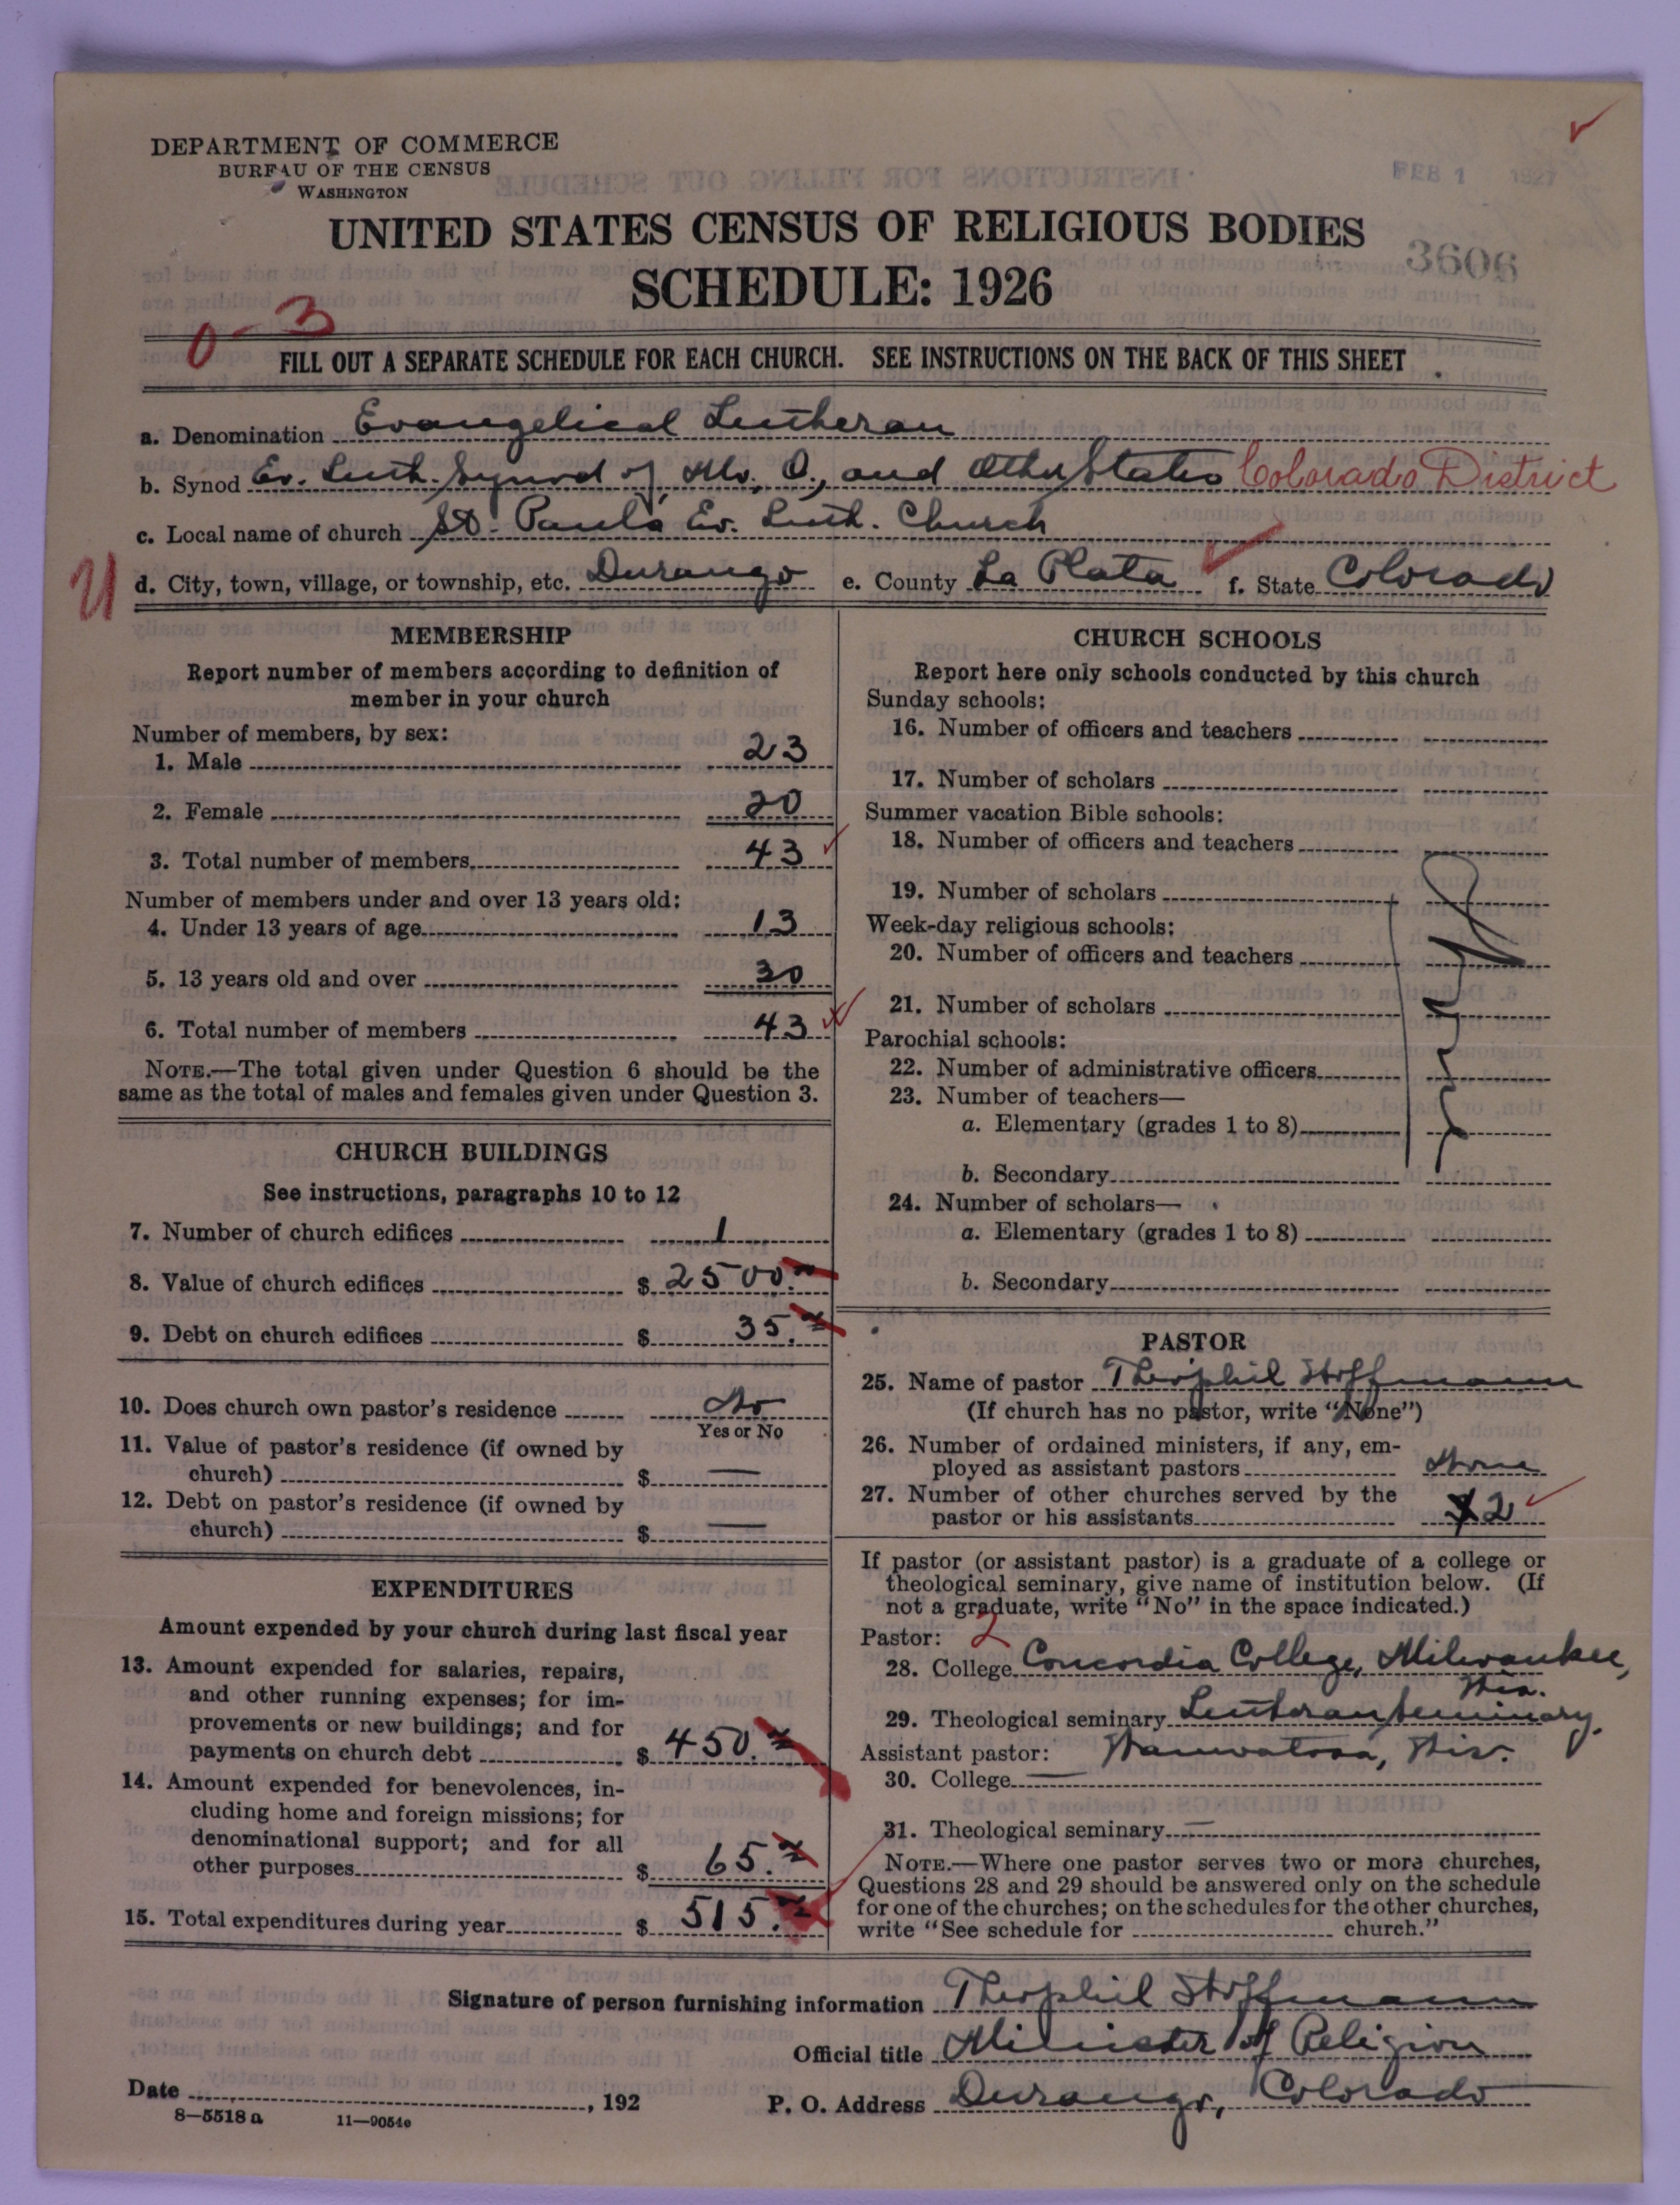 DEPARTMENT OF COMMERCE
BUREAU OF THE CENSUS
WASHINGTON
FEB 1 1927
UNITED STATES CENSUS OF RELIGIOUS BODIES
SCHEDULE: 1926
3606
0-3
FILL OUT A SEPARATE SCHEDULE FOR EACH CHURCH. SEE INSTRUCTIONS ON THE BACK OF THIS SHEET
a. Denomination Evangelical Lutheran
b. Synod Ev. Luth. Synod of Mo., O., and Other States Colorado District
c. Local name of church St. Paul's Ev. Luth. Church
d. City, town, village, or township, etc. Durango e. County La Plata f. State Colorado
MEMBERSHIP
Report number of members according to definition of
member in your church
Number of members, by sex:
1. Male 23
2. Female 20
3. Total number of members 43
Number of members under and over 13 years old:
4. Under 13 years of age 13
5. 13 years old and over 30
6. Total number of members 43
NOTE.—The total given under Question 6 should be the
same as the total of males and females given under Question 3.
CHURCH BUILDINGS
See instructions, paragraphs 10 to 12
7. Number of church edifices 1
8. Value of church edifices $ 2500.
9. Debt on church edifices $ 35.
10. Does church own pastor's residence No
Yes or No
11. Value of pastor's residence (if owned by
church) $ —
12. Debt on pastor's residence (if owned by
church) $ —
EXPENDITURES
Amount expended by your church during last fiscal year
13. Amount expended for salaries, repairs,
and other running expenses; for im-
provements or new buildings; and for
payments on church debt $ 450.
14. Amount expended for benevolences, in-
cluding home and foreign missions; for
denominational support; and for all
other purposes $ 65.
15. Total expenditures during year $ 515.
CHURCH SCHOOLS
Report here only schools conducted by this church
Sunday schools:
16. Number of officers and teachers
17. Number of scholars
Summer vacation Bible schools:
18. Number of officers and teachers
19. Number of scholars
Week-day religious schools:
20. Number of officers and teachers
21. Number of scholars
Parochial schools:
22. Number of administrative officers
23. Number of teachers—
a. Elementary (grades 1 to 8)
b. Secondary
24. Number of scholars—
a. Elementary (grades 1 to 8)
b. Secondary
PASTOR
25. Name of pastor Theophil Hoffmann
(If church has no pastor, write "None")
26. Number of ordained ministers, if any, em-
ployed as assistant pastors None
27. Number of other churches served by the
pastor or his assistants 2
If pastor (or assistant pastor) is a graduate of a college or
theological seminary, give name of institution below. (If
not a graduate, write "No" in the space indicated.)
Pastor: 2
28. College Concordia College, Milwaukee,
Wis.
29. Theological seminary Lutheran Seminary,
Assistant pastor: Wauwatosa, Wis.
30. College —
31. Theological seminary —
NOTE.—Where one pastor serves two or more churches,
Questions 28 and 29 should be answered only on the schedule
for one of the churches; on the schedules for the other churches,
write "See schedule for church."
Signature of person furnishing information Theophil Hoffmann
Official title Minister of Religion
Date , 192
P. O. Address Durango, Colorado
8—5518 a 11—9054e